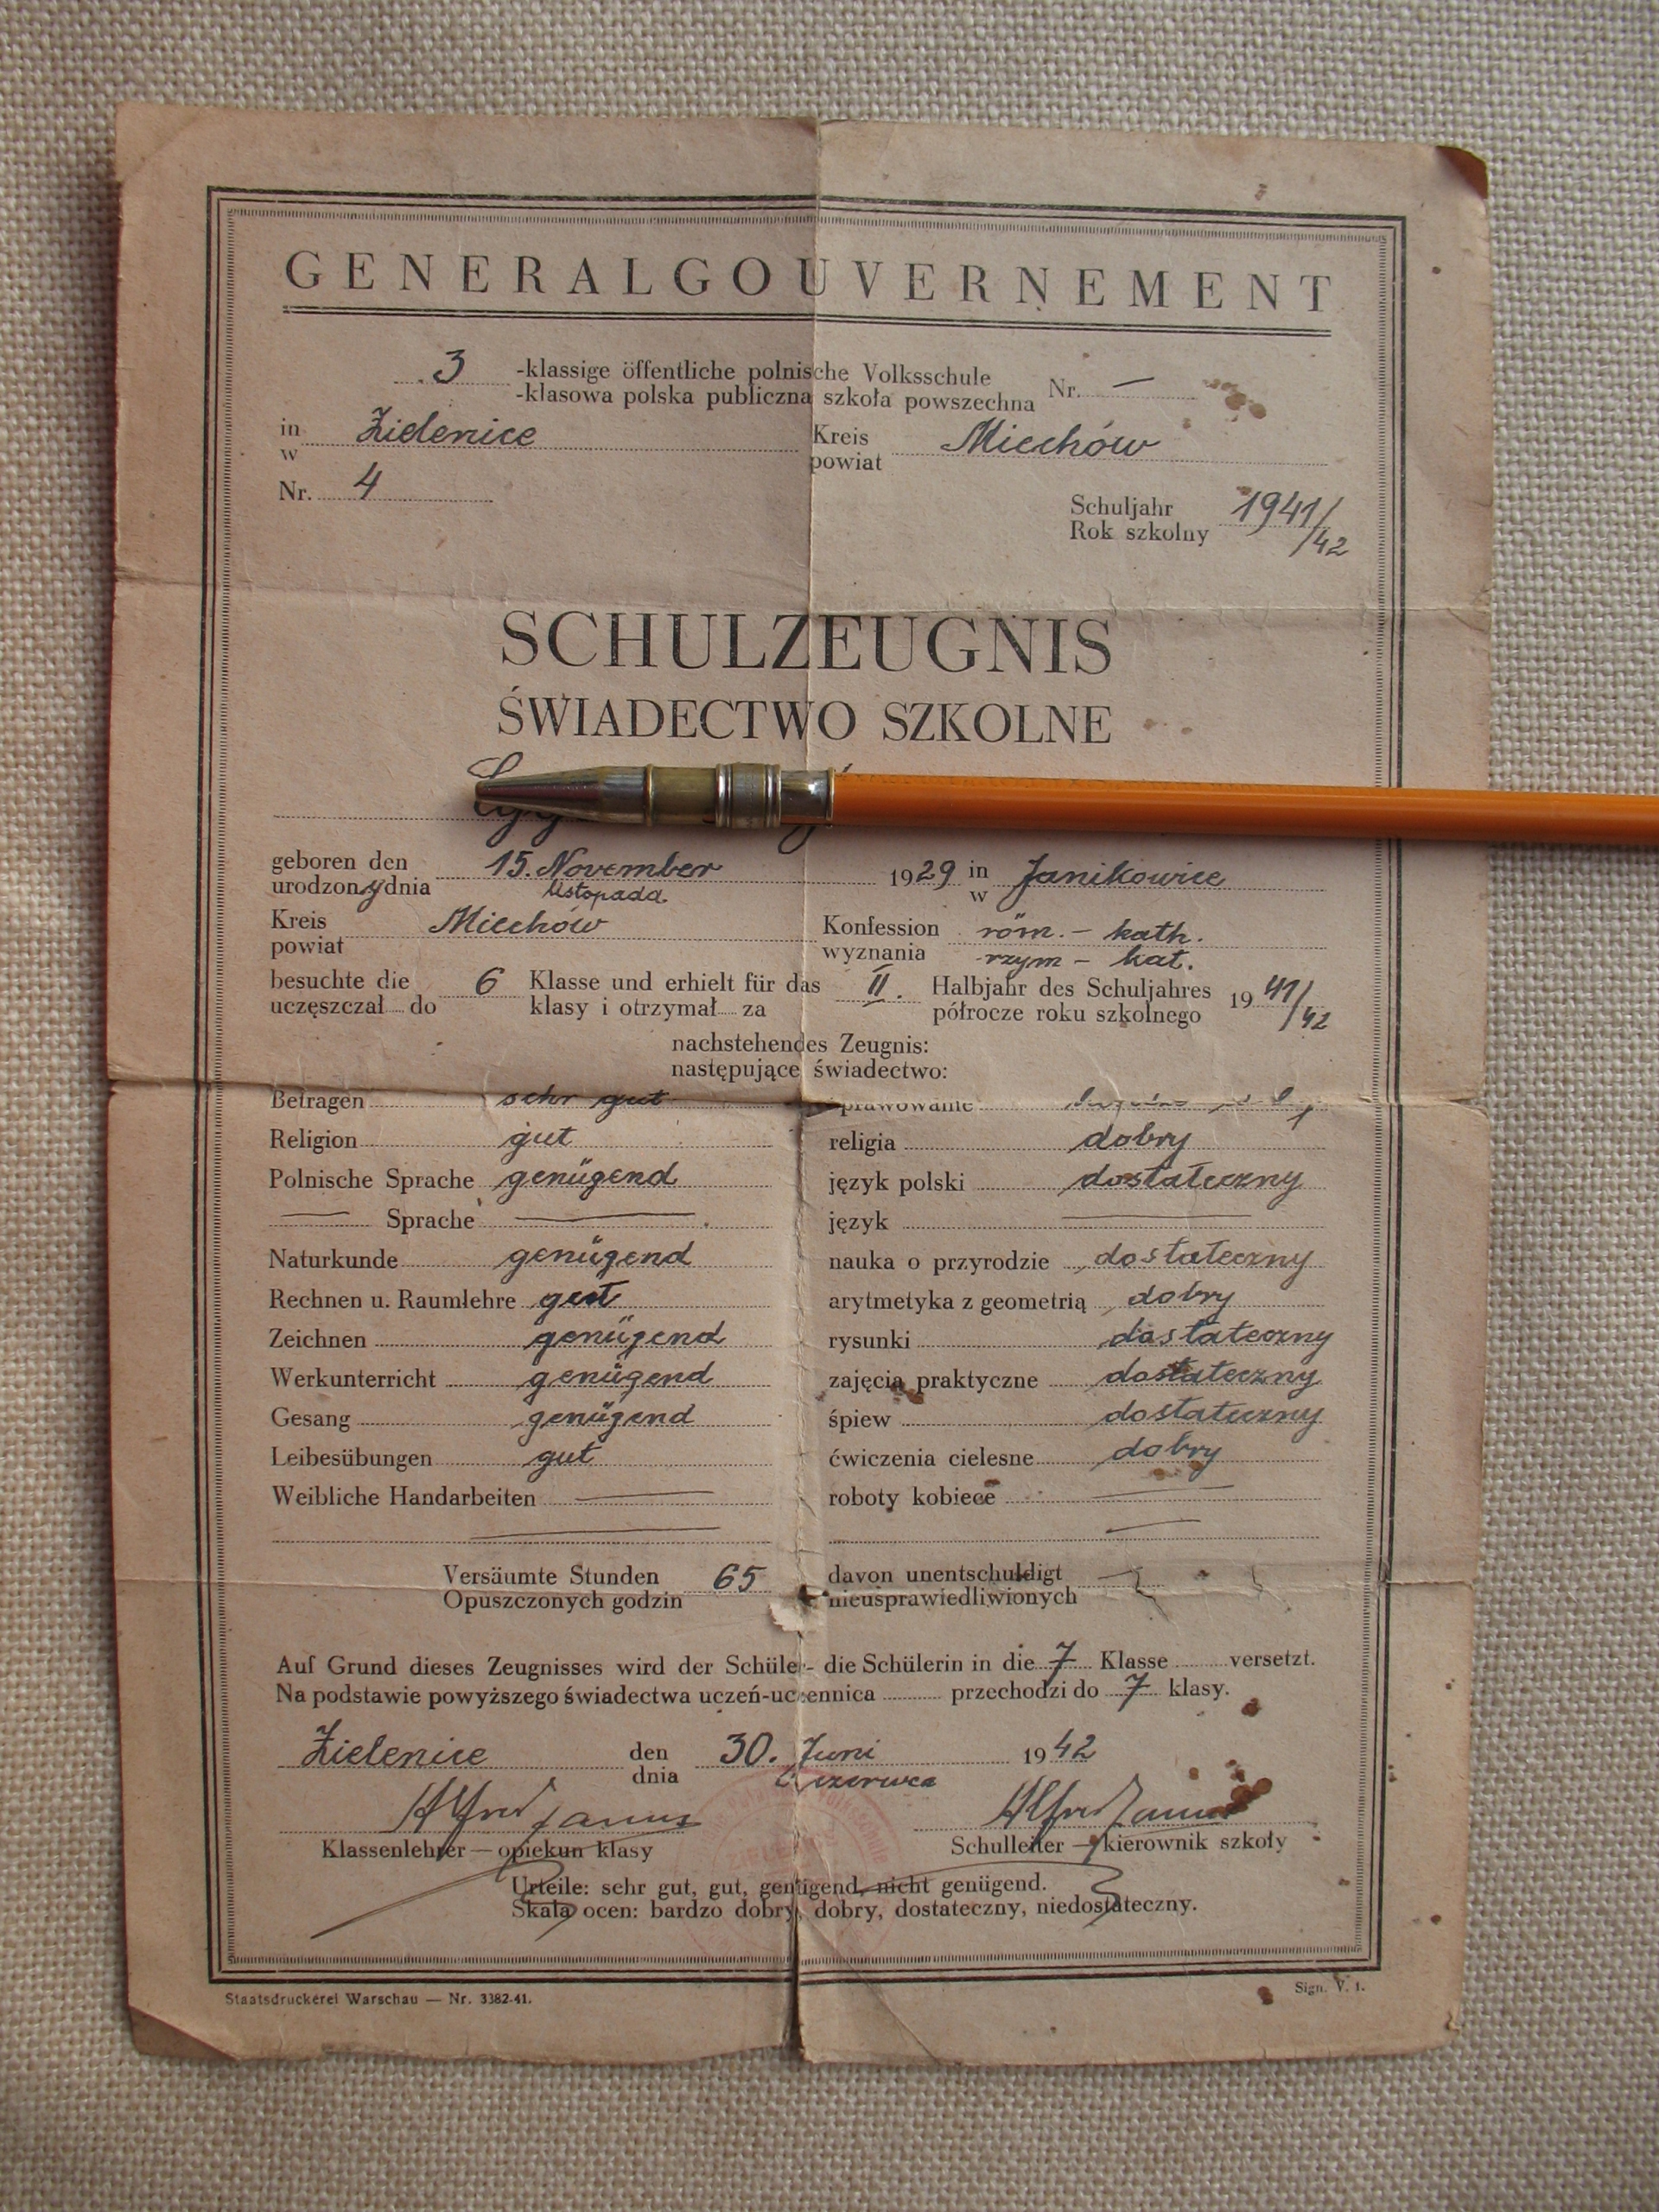 GENERALGOUVERNEMENT
3 -klassige öffentliche polnische Volksschule Nr. —
-klasowa polska publiczna szkoła powszechna
in Zielenice Kreis Miechów
w powiat
Nr. 4
Schuljahr 1941/
Rok szkolny /42
SCHULZEUGNIS
ŚWIADECTWO SZKOLNE
geboren den 15. November 1929 in Janikowice
urodzony dnia listopada w
Kreis Miechów Konfession röm. - kath.
powiat wyznania rzym - kat.
besuchte die 6 Klasse und erhielt für das II. Halbjahr des Schuljahres 1941/42
uczęszczał do klasy i otrzymał za półrocze roku szkolnego
nachstehendes Zeugnis:
następujące świadectwo:
Betragen sehr gut prawowanie
Religion gut religia dobry
Polnische Sprache genügend język polski dostateczny
— Sprache — język —
Naturkunde genügend nauka o przyrodzie dostateczny
Rechnen u. Raumlehre gut arytmetyka z geometrią dobry
Zeichnen genügend rysunki dostateczny
Werkunterricht genügend zajęcia praktyczne dostateczny
Gesang genügend śpiew dostateczny
Leibesübungen gut ćwiczenia cielesne dobry
Weibliche Handarbeiten — roboty kobiece —
Versäumte Stunden 65 davon unentschuldigt —
Opuszczonych godzin nieusprawiedliwionych
Auf Grund dieses Zeugnisses wird der Schüler - die Schülerin in die 7 Klasse versetzt.
Na podstawie powyższego świadectwa uczeń-uczennica przechodzi do 7 klasy.
Zielenice den 30. Juni 1942
dnia czerwca
Alfred Janus Alfred Janus
Klassenlehrer — opiekun klasy Schulleiter — kierownik szkoły
Urteile: sehr gut, gut, genügend, nicht genügend.
Skala ocen: bardzo dobry, dobry, dostateczny, niedostateczny.
Staatsdruckerei Warschau — Nr. 3382-41. Sign. V. 1.